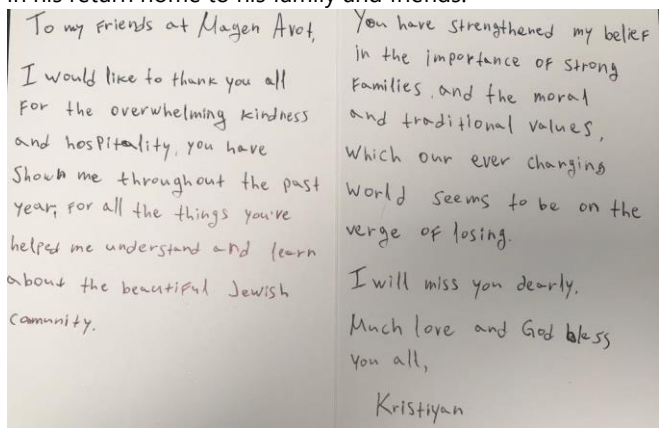 in his return home to his family and friends.
To my friends at Magen Avot,
I would like to thank you all
for the overwhelming kindness
and hospitality, you have
shown me throughout the past
year, for all the things you've
helped me understand and learn
about the beautiful Jewish
comunity.
You have strengthened my belief
in the importance of strong
families, and the moral
and traditional values,
which our ever changing
world seems to be on the
verge of losing.
I will miss you dearly.
Much love and God bless
you all,
Kristiyan